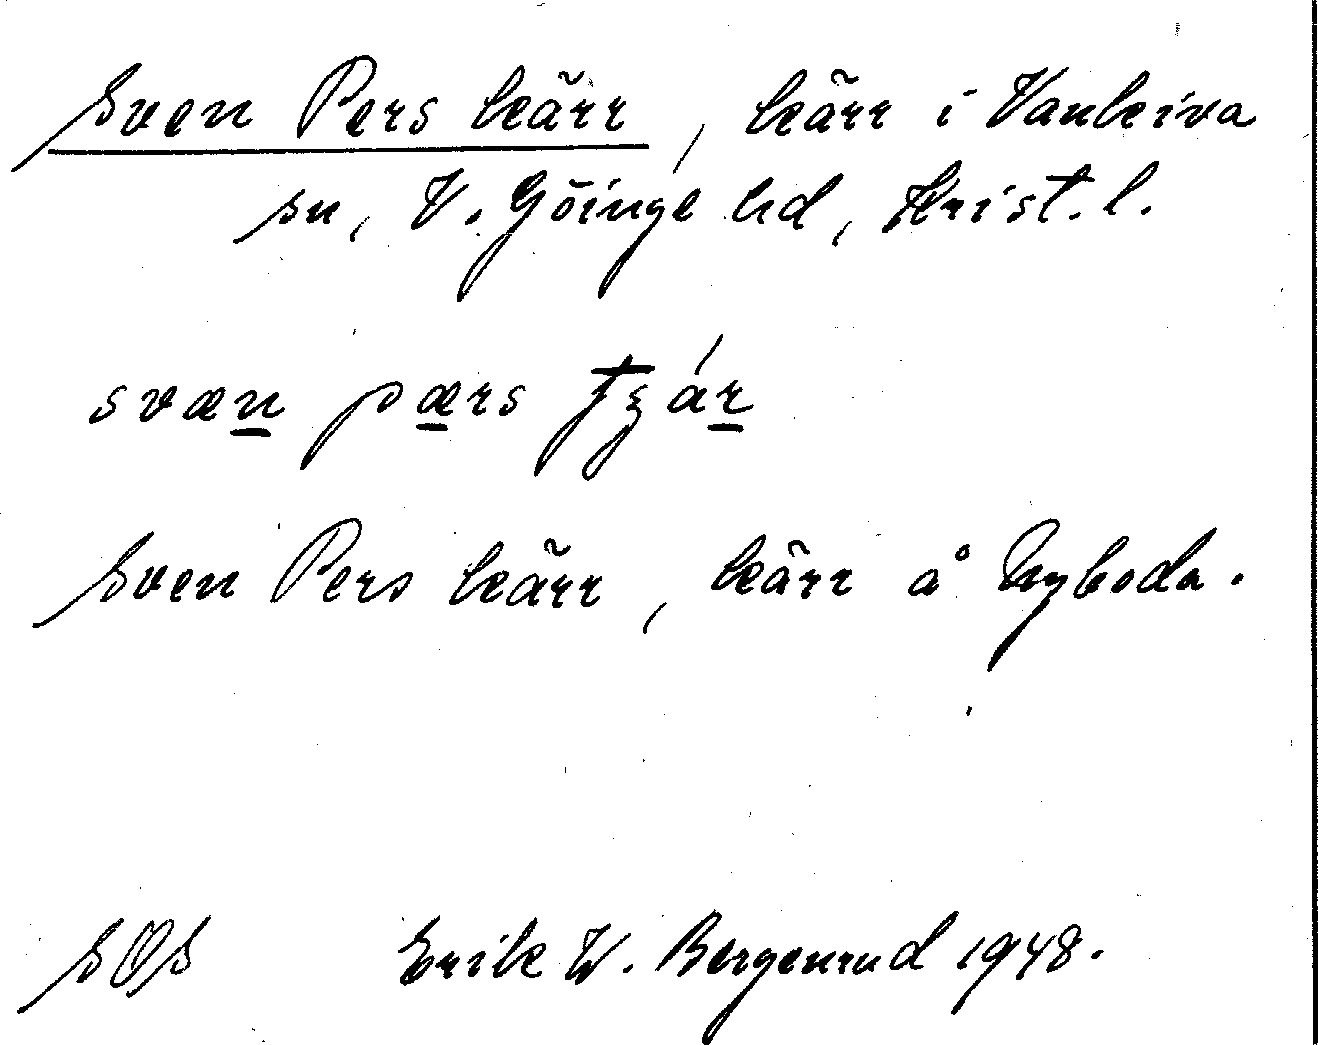 Sven Pers kärr, kärr i Vankiva
sn, V. Göinge hd, Krist. l.
svæn pærs tʒár
Sven Pers kärr, kärr å Nyboda.
SOS Erik W. Bergenrud 1948.